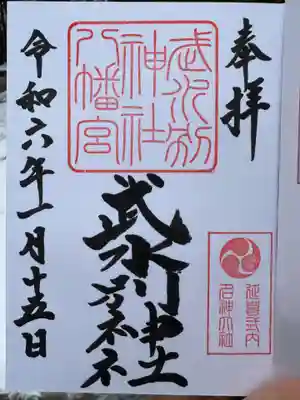 奉拝
延喜式内
名神大社
武水別
神社
八幡宮
武水別神社
令和六年一月十五日